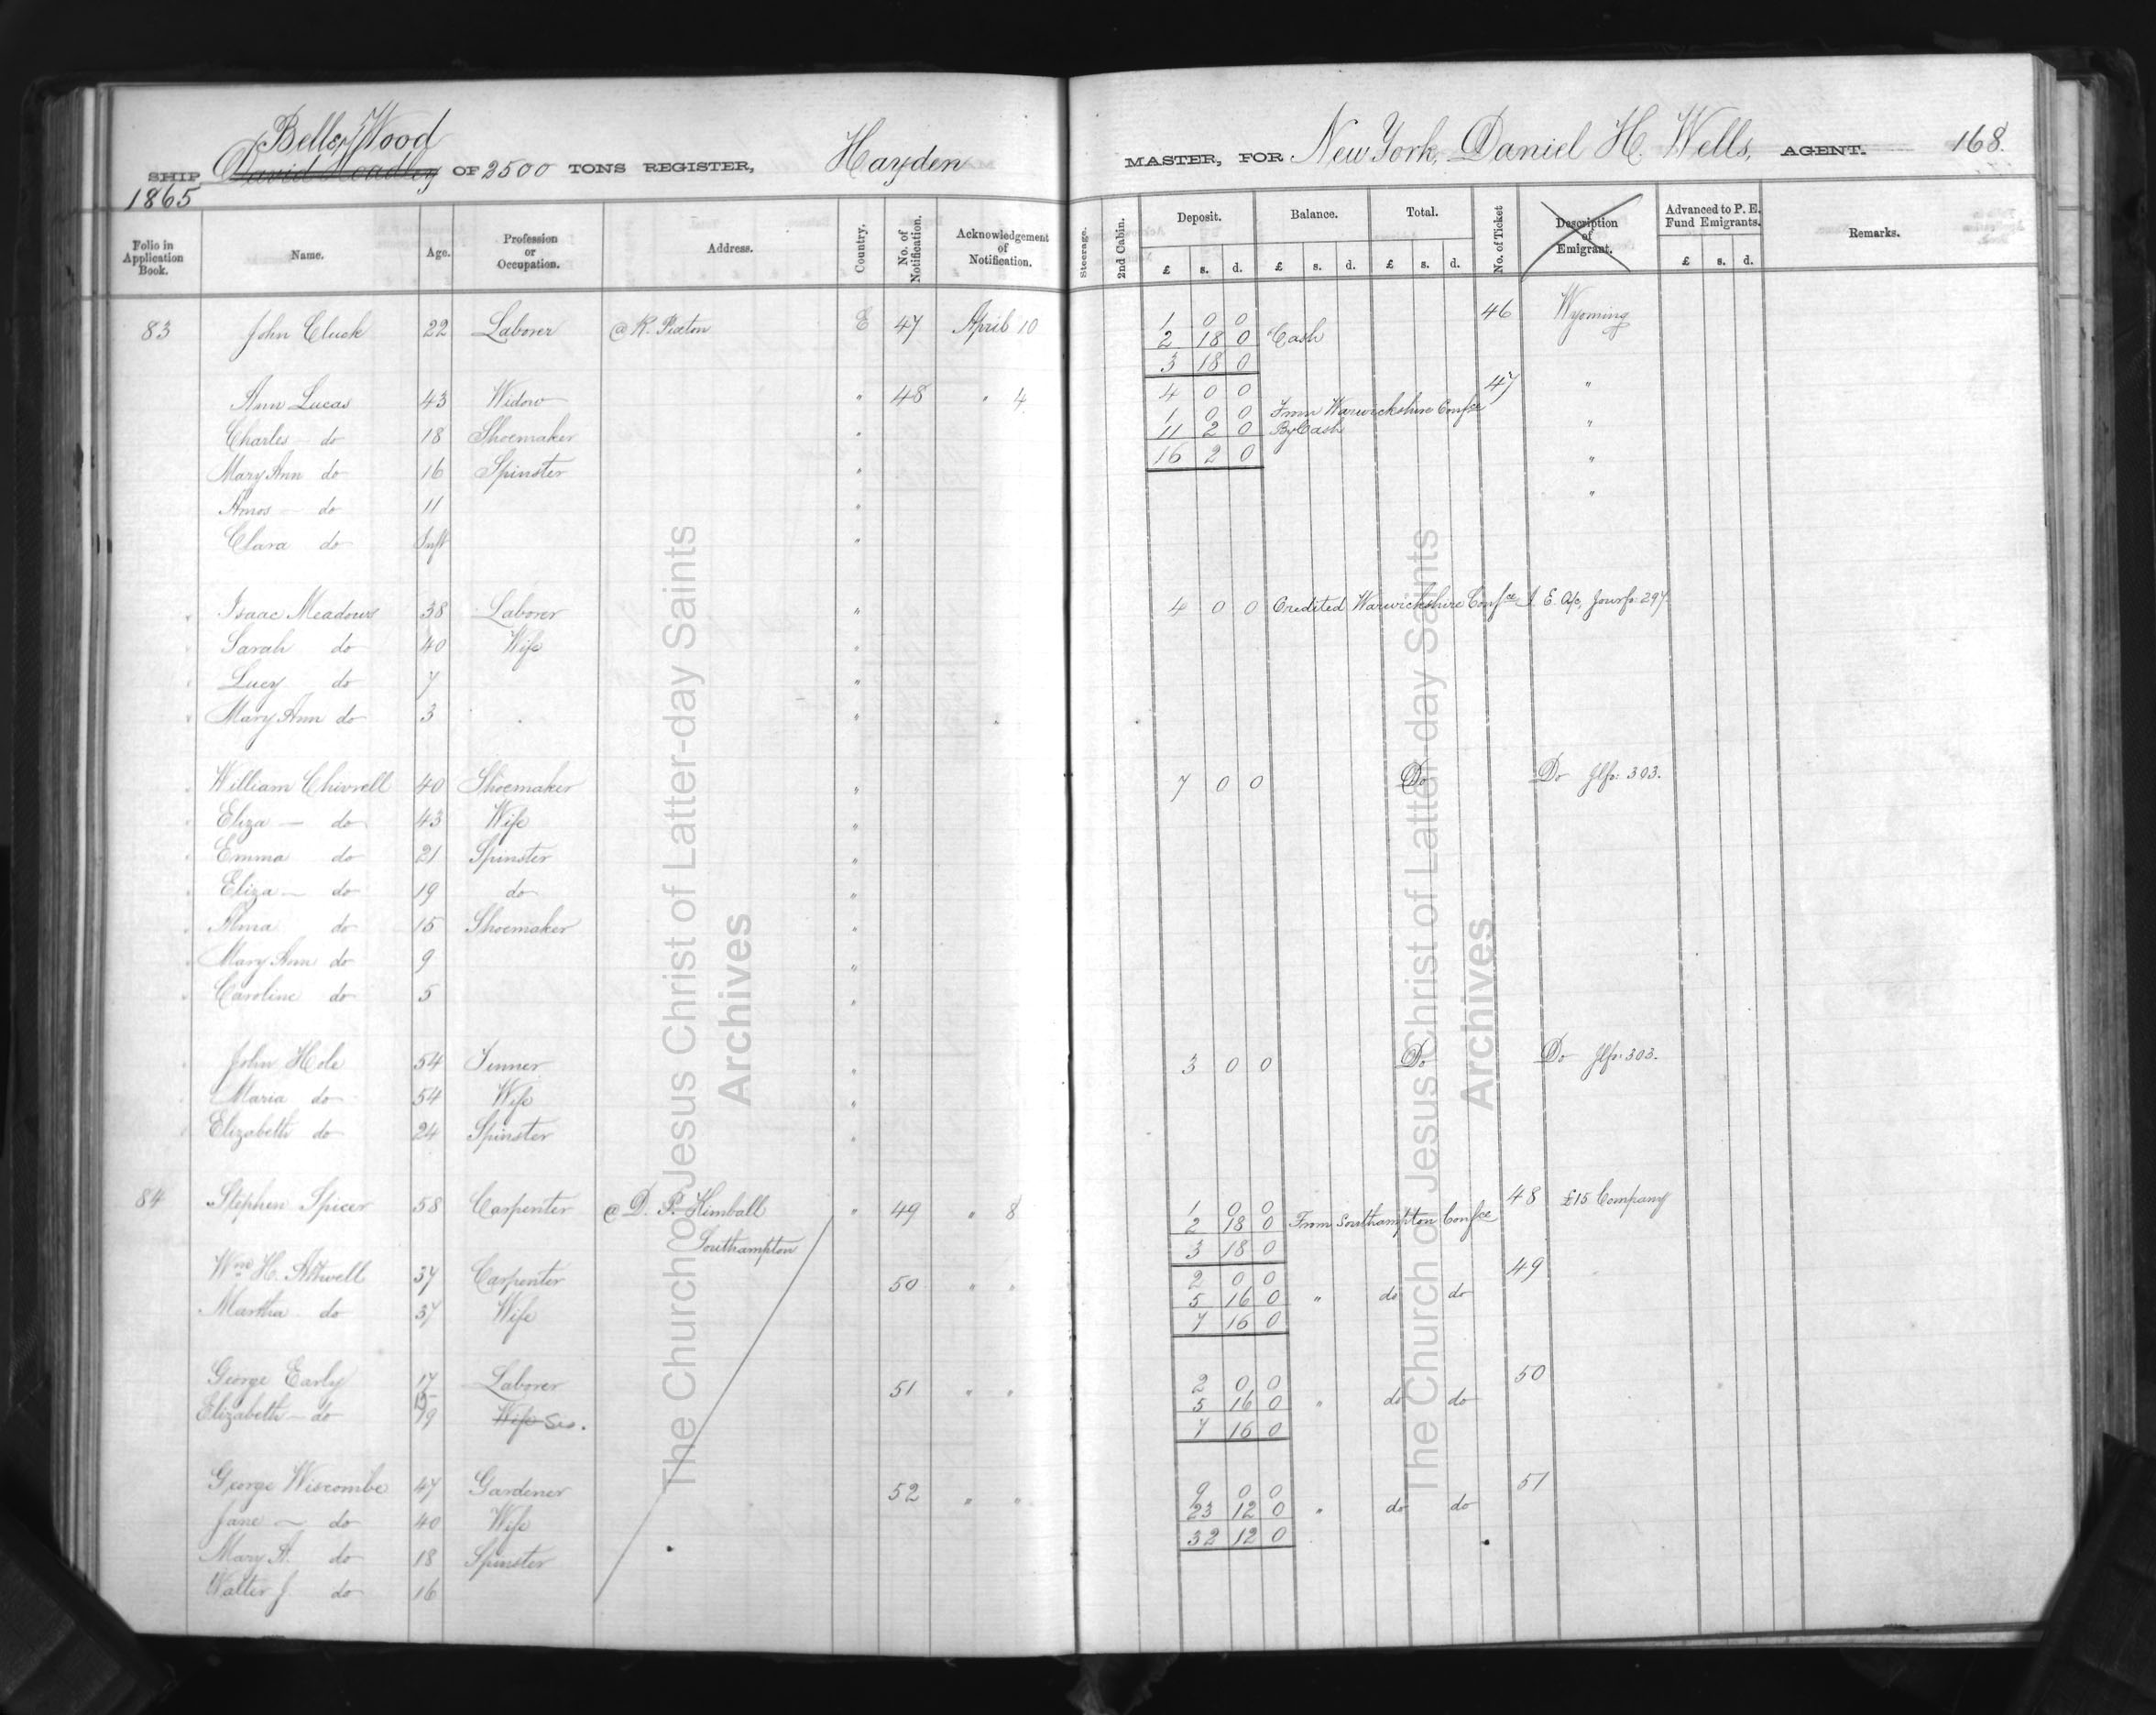 Belle Wood
SHIP David Hoadley OF 2500 TONS REGISTER, Hayden MASTER, FOR New York, Daniel H. Wells, AGENT. 168.
1865
Folio in Application Book. Name. Age. Profession or Occupation. Address. Country. No. of Notification. Acknowledgement of Notification. Steerage. 2nd Cabin. Deposit. Balance. Total. No. of Ticket Description of Emigrant. Advanced to P. E. Fund Emigrants. Remarks.
£ s. d. £ s. d. £ s. d. £ s. d.
83 John Cluck 22 Laborer @ R. Pixton E 47 April 10 1 0 0 46 Wyoming
2 18 0 Cash
3 18 0
Ann Lucas 43 Widow " 48 " 4 4 0 0 47 "
1 0 0 From Warwickshire Confce
Charles do 18 Shoemaker " 11 2 0 By Cash "
Mary Ann do 16 Spinster " 16 2 0 "
Amos do 11 " "
Clara do Inft "
" Isaac Meadows 38 Laborer " 4 0 0 Credited Warwickshire Confce I. E. A/c, Jour fo: 297.
" Sarah do 40 Wife "
" Lucy do 7 "
" Mary Ann do 3 "
" William Chivrell 40 Shoemaker " 7 0 0 Do Do Jlfo: 303.
" Eliza — do 43 Wife "
" Emma do 21 Spinster "
" Eliza — do 19 do "
" Alma do 15 Shoemaker "
" Mary Ann do 9 "
" Caroline do 5 "
" John Hole 54 " 3 0 0 Do Do Jlfo: 303.
" Maria do 54 Wife "
" Elizabeth do 24 Spinster "
84 Stephen Spicer 58 Carpenter @ D. P. Kimball " 49 " 8 1 0 0 48 £15 Company
2 18 0 From Southampton Confce
Southampton 3 18 0
Wm H. Attwell 37 Carpenter 50 " " 2 0 0 49
5 16 0 " do do
Martha do 37 Wife 7 16 0
George Early 17 Laborer 51 " " 2 0 0 50
5 16 0 " do do
Elizabeth — do 19 Wife Sis. 7 16 0
George Wiscombe 47 Gardener 52 " " 9 0 0 51
23 12 0 " do do
Jane — do 40 Wife 32 12 0
Mary A. do 18 Spinster
Walter J. do 16
The Church of Jesus Christ of Latter-day Saints
Archives
The Church of Jesus Christ of Latter-day Saints
Archives